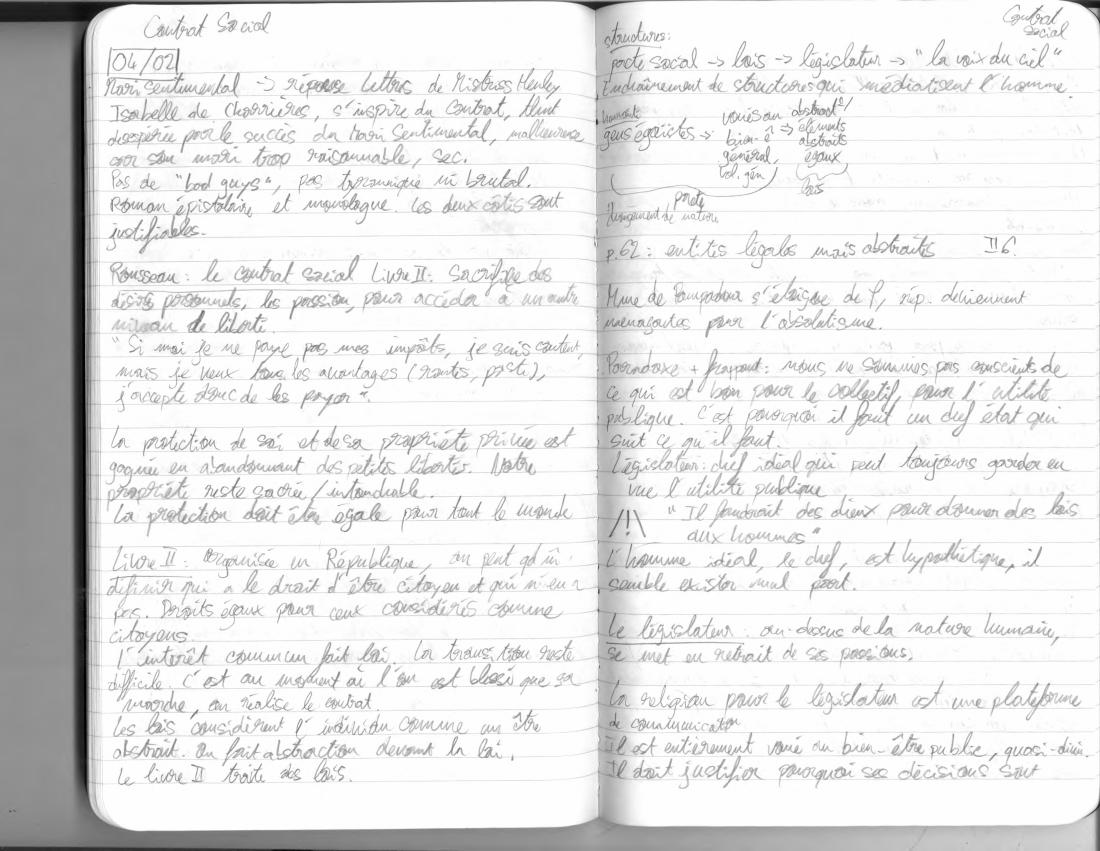 Contrat Social
04/02
Mari Sentimental -> réponse Lettres de Mistriss Henley
Isabelle de Charrières, s'inspire du Contrat,
désespérée par le succès du Mari Sentimental, malheureuse
car son mari trop raisonnable, sec.
Pas de "bad guys", pas tyrannique ni brutal.
Roman épistolaire et monologue. Les deux côtés sont
justifiables.
Rousseau : le contrat social Livre II : Sacrifice des
désirs personnels, les passion, pour accéder à un autre
niveau de liberté.
"Si moi je ne paye pas mes impôts, je suis content,
mais je veux tous les avantages (routes, poste),
j'accepte donc de les payer".
La protection de soi et de sa propriété privée est
gagnée en abandonnant des petites libertés. Notre
propriété reste sacrée / intouchable.
La protection doit être égale pour tout le monde
Livre II : organisée en République, on peut
définir qui a le droit d'être citoyen et qui n'en a
pas. Droits égaux pour ceux considérés comme
citoyens.
L'intérêt commun fait loi. La transition reste
difficile. C'est au moment où l'on est blessé que ça
marche, on réalise le contrat.
Les lois considèrent l'individu comme un être
abstrait. On fait abstraction devant la loi.
Le livre II traite des lois.
Contrat
Social
structures:
pacte social -> lois -> législateur -> "la voix du ciel"
Enchaînement de structures qui médiatisent l'homme.
humains abstrait
gens égoïstes -> voués au bien-ê général, vol. gén -> éléments abstraits égaux
lois
pacte
changement de nature
p.62 : entités légales mais abstraits II 6.
Mme de Pompadour s'éloigne de P, rép. deviennent
menaçantes pour l'absolutisme.
Paradoxe + frappant : nous ne sommes pas conscients de
ce qui est bon pour le collectif, pour l'utilité
publique. C'est pourquoi il faut un chef état qui
sait ce qu'il faut.
Législateur : chef idéal qui peut toujours garder en
vue l'utilité publique
/!\ "Il faudrait des dieux pour donner des lois
aux hommes"
L'homme idéal, le chef, est hypothétique, il
semble exister nul part.
Le législateur : au-dessus de la nature humaine,
se met en retrait de ses passions.
La religion pour le législateur est une plateforme
de communication
Il est entièrement voué au bien-être public, quasi-divin.
Il doit justifier pourquoi ses décisions sont